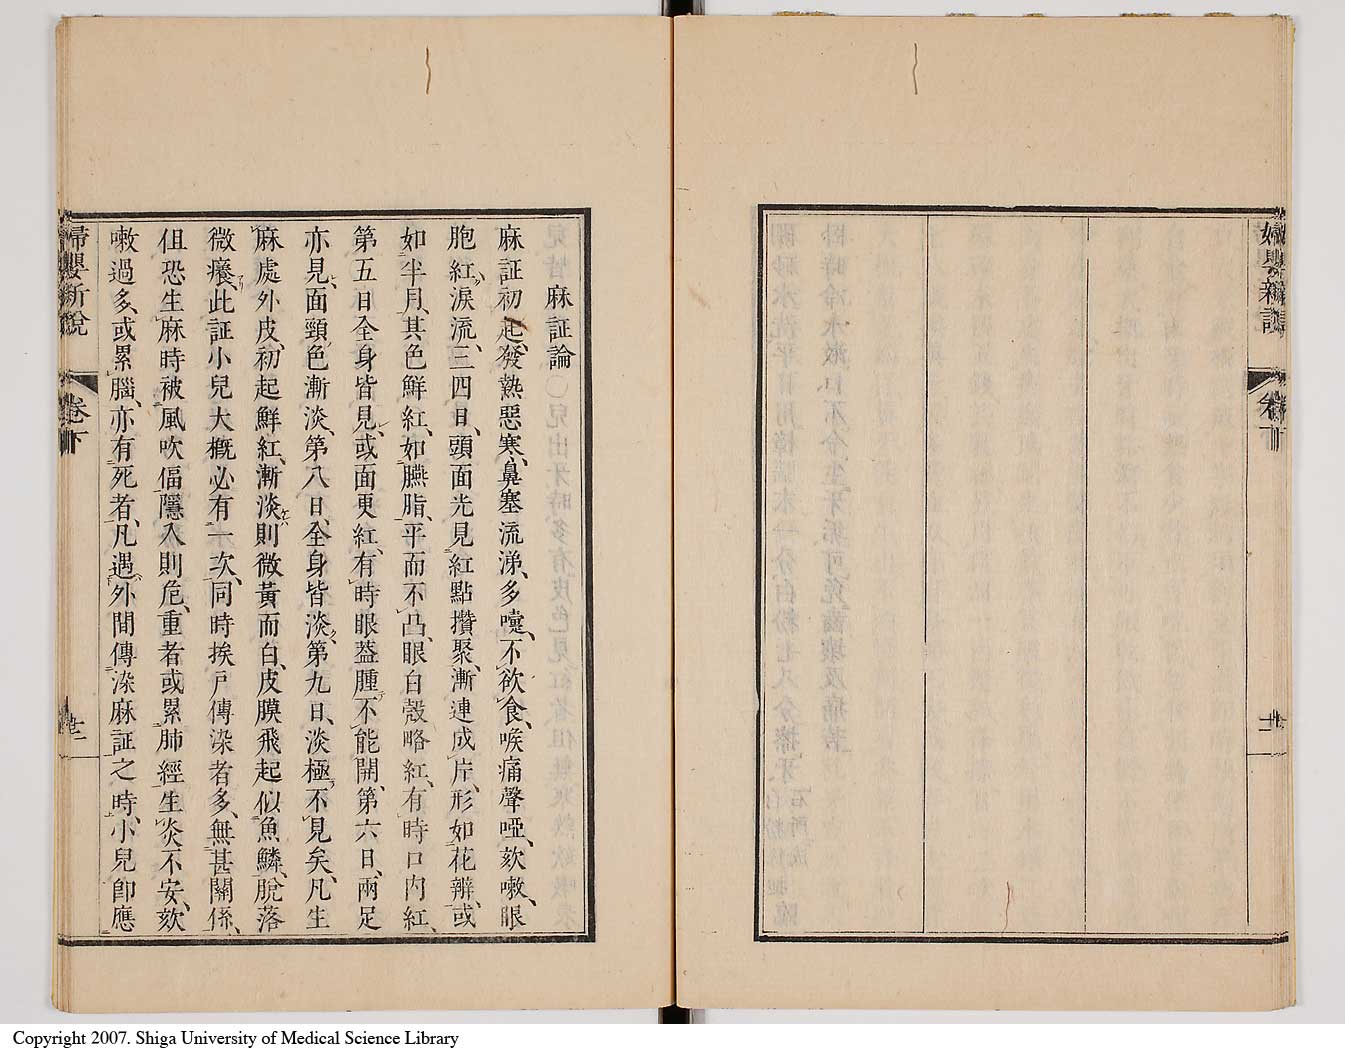 婦嬰新說
卷下
麻証論
麻証初起、發熱惡寒、鼻塞流涕、多嚔、不欲食、喉痛聲啞、欬嗽、眼
胞紅淚流、三四日、頭面先見紅點攢聚、漸連成片、形如花瓣、或
如半月、其色鮮紅、如臙脂、平而不凸、眼白殼略紅、有時口内紅、
第五日全身皆見、或面更紅、有時眼葢腫不能開、第六日、兩足
亦見、面頸色漸淡、第八日、全身皆淡、第九日、淡極不見矣、凡生
麻處外皮、初起鮮紅、漸淡則微黃而白、皮膜飛起似魚鱗、脫落
微癢、此証小兒大概必有一次、同時挨戸傳染者多、無甚關係、
但恐生麻時被風吹傴隱入則危、重者或累肺經生炎不安、欬
嗽過多、或累腦、亦有死者、凡遇外間傳染麻証之時、小兒卽應
婦嬰新說
卷下
Copyright 2007. Shiga University of Medical Science Library